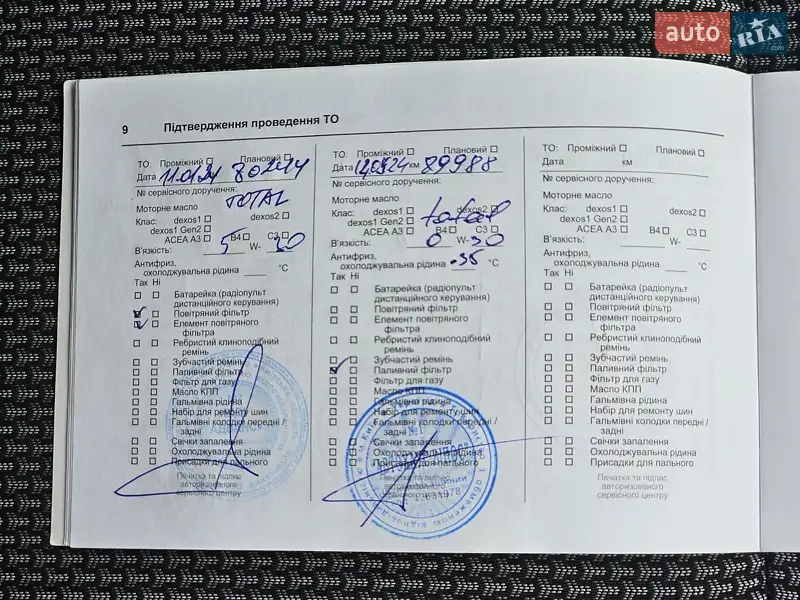 auto RIA.com
9 Підтвердження проведення ТО
ТО: Проміжний Плановий
Дата 11.01.24 80244
№ сервісного доручення:
Моторне масло TOTAL
Клас: dexos1 dexos2
dexos1 Gen2
ACEA A3 B4 C3
В'язкість: 5 W- 30
Антифриз,
охолоджувальна рідина °C
Так Ні
Батарейка (радіопульт
дистанційного керування)
Повітряний фільтр
Елемент повітряного
фільтра
Ребристий клиноподібний
ремінь
Зубчастий ремінь
Паливний фільтр
Фільтр для газу
Масло КПП
Гальмівна рідина
Набір для ремонту шин
Гальмівні колодки передні /
задні
Свічки запалення
Охолоджувальна рідина
Присадки для пального
Печатка та підпис
авторизованого
сервісного центру
ТО: Проміжний Плановий
Дата км 89988
№ сервісного доручення:
Моторне масло
Клас: dexos1 dexos2 total
dexos1 Gen2
ACEA A3 B4 C3
В'язкість: 0 W- 30
Антифриз,
охолоджувальна рідина -35 °C
Так Ні
Батарейка (радіопульт
дистанційного керування)
Повітряний фільтр
Елемент повітряного
фільтра
Ребристий клиноподібний
ремінь
Зубчастий ремінь
Паливний фільтр
Фільтр для газу
Масло КПП
Гальмівна рідина
Набір для ремонту шин
Гальмівні колодки передні /
задні
Свічки запалення
Охолоджувальна рідина
Присадки для пального
Печатка та підпис
авторизованого
сервісного центру
ТО: Проміжний Плановий
Дата км
№ сервісного доручення:
Моторне масло
Клас: dexos1 dexos2
dexos1 Gen2
ACEA A3 B4 C3
В'язкість: W-
Антифриз,
охолоджувальна рідина °C
Так Ні
Батарейка (радіопульт
дистанційного керування)
Повітряний фільтр
Елемент повітряного
фільтра
Ребристий клиноподібний
ремінь
Зубчастий ремінь
Паливний фільтр
Фільтр для газу
Масло КПП
Гальмівна рідина
Набір для ремонту шин
Гальмівні колодки передні /
задні
Свічки запалення
Охолоджувальна рідина
Присадки для пального
Печатка та підпис
авторизованого
сервісного центру